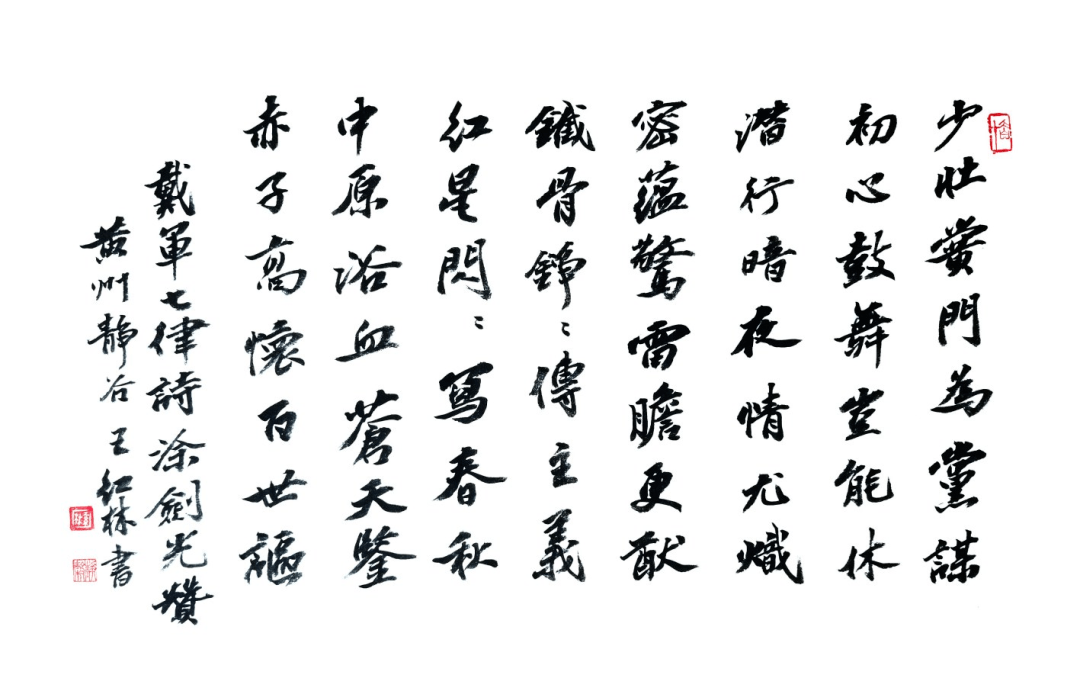 少壯黌門為黨謀
初心鼓舞豈能休
潛行暗夜情尤熾
密蘊驚雷膽更猷
鐵骨錚々傳主義
紅星閃々寫春秋
中原浴血蒼天鑒
赤子高懷百世謳
戴軍七律詩涂劍光贊
黃州靜谷王紅林書